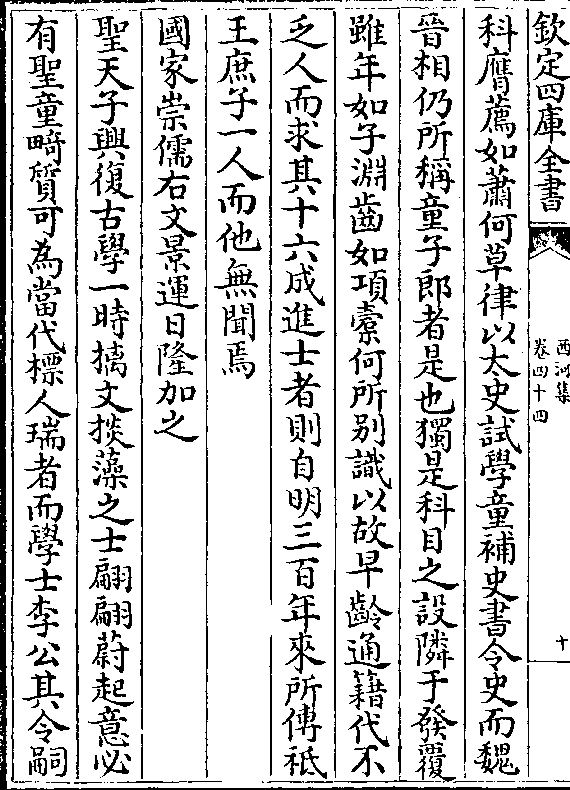 欽定四庫全書
西河集
卷四十四
十
科膺薦如蕭何草律以太史試學童補史書令史而魏
晉相仍所稱童子郎者是也獨是科目之設隣于發覆
雖年如子淵齒如項橐何所别識以故早齡通籍代不
乏人而求其十六成進士者則自明三百年來所傳祗
王庶子一人而他無聞焉
國家崇儒右文景運日隆加之
聖天子興復古學一時摛文掞藻之士翩翩蔚起意必
有聖童畸質可為當代標人瑞者而學士李公其令嗣